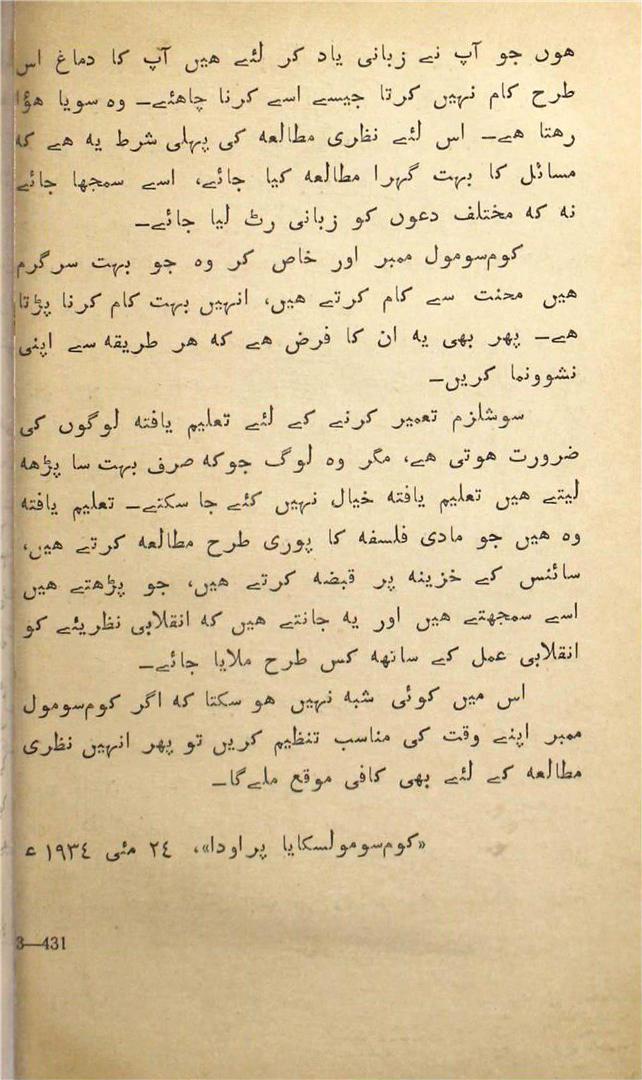 هوں جو آپ نے زبانی یاد کر لئے هیں آپ کا دماغ اس
طرح کام نہیں کرتا جیسے اسے کرنا چاهئے۔ وہ سویا هؤا
رهتا هے۔ اس لئے نظری مطالعہ کی پہلی شرط یہ هے کہ
مسائل کا بہت گہرا مطالعہ کیا جائے، اسے سمجھا جائے
نہ کہ مختلف دعوں کو زبانی رٹ لیا جائے۔
کوم‌سومول ممبر اور خاص کر وہ جو بہت سرگرم
هیں محنت سے کام کرتے هیں، انہیں بہت کام کرنا پڑتا
هے۔ پھر بھی یہ ان کا فرض هے کہ هر طریقہ سے اپنی
نشوونما کریں۔
سوشلزم تعمیر کرنے کے لئے تعلیم یافتہ لوگوں کی
ضرورت هوتی هے، مگر وہ لوگ جوکہ صرف بہت سا پڑھ
لیتے هیں تعلیم یافتہ خیال نہیں کئے جا سکتے۔ تعلیم یافتہ
وہ هیں جو مادی فلسفہ کا پوری طرح مطالعہ کرتے هیں،
سائنس کے خزینہ پر قبضہ کرتے هیں، جو پڑھتے هیں
اسے سمجھتے هیں اور یہ جانتے هیں کہ انقلابی نظریئے کو
انقلابی عمل کے ساتھ کس طرح ملایا جائے۔
اس میں کوئی شبہ نہیں هو سکتا کہ اگر کوم‌سومول
ممبر اپنے وقت کی مناسب تنظیم کریں تو پھر انہیں نظری
مطالعہ کے لئے بھی کافی موقع ملے‌گا۔
«کوم‌سومولسکایا پراودا»، ٢٤ مئی ١٩٣٤ ء
3—431